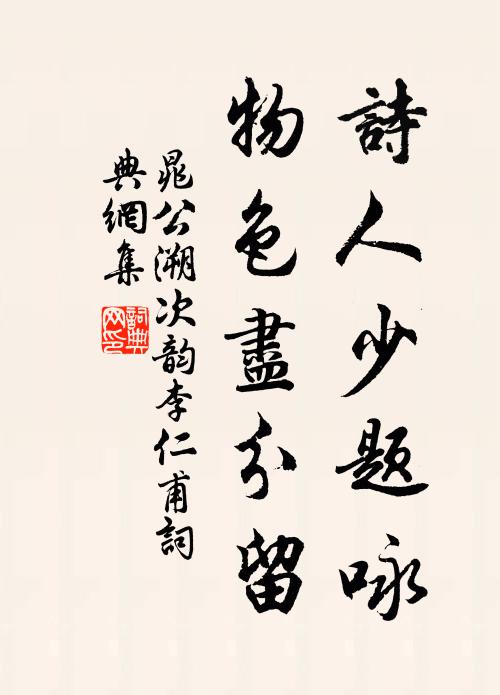 詩人少題咏
物色盡分留
晁公溯次韵李仁甫詞
典網集
詞典
网印